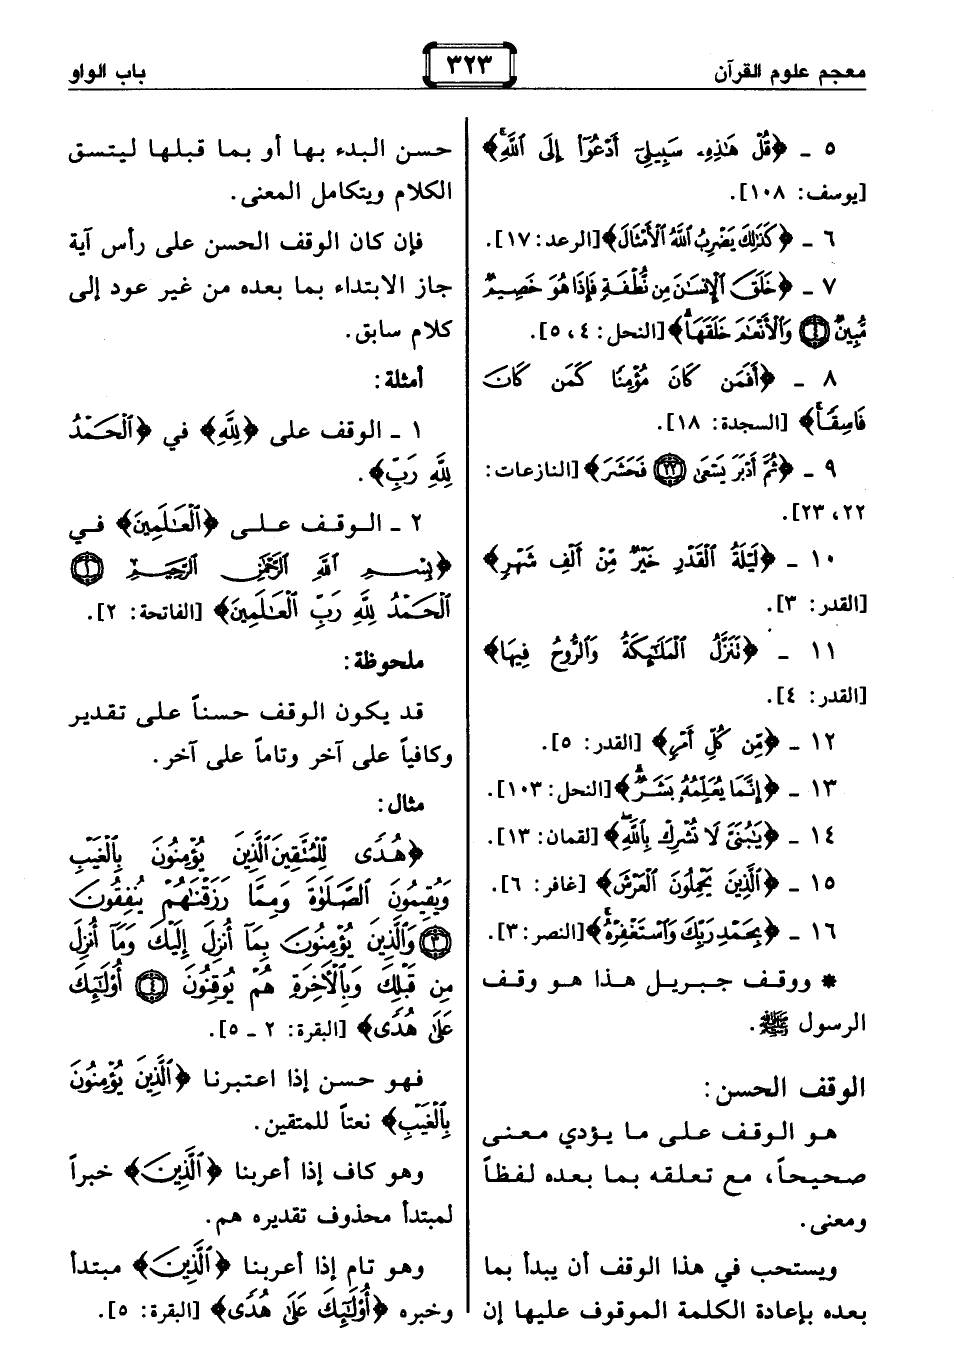 معجم علوم القرآن
٣٢٣
باب الواو
٥ ـ ﴿قُلْ هَٰذِهِۦ سَبِيلِىٓ أَدْعُوٓا۟ إِلَى ٱللَّهِ ۚ﴾
[يوسف: ١٠٨].
٦ ـ ﴿كَذَٰلِكَ يَضْرِبُ ٱللَّهُ ٱلْأَمْثَالَ﴾ [الرعد: ١٧].
٧ ـ ﴿خَلَقَ ٱلْإِنسَٰنَ مِن نُّطْفَةٍ فَإِذَا هُوَ خَصِيمٌ
مُّبِينٌ ﴿٤﴾ وَٱلْأَنْعَٰمَ خَلَقَهَا ۗ﴾ [النحل: ٤، ٥].
٨ ـ ﴿أَفَمَن كَانَ مُؤْمِنًا كَمَن كَانَ
فَاسِقًا ۚ﴾ [السجدة: ١٨].
٩ ـ ﴿ثُمَّ أَدْبَرَ يَسْعَىٰ ﴿٢٢﴾ فَحَشَرَ﴾ [النازعات:
٢٢، ٢٣].
١٠ ـ ﴿لَيْلَةُ ٱلْقَدْرِ خَيْرٌ مِّنْ أَلْفِ شَهْرٍ﴾
[القدر: ٣].
١١ ـ ﴿تَنَزَّلُ ٱلْمَلَٰٓئِكَةُ وَٱلرُّوحُ فِيهَا﴾
[القدر: ٤].
١٢ ـ ﴿مِّن كُلِّ أَمْرٍ﴾ [القدر: ٥].
١٣ ـ ﴿إِنَّمَا يُعَلِّمُهُۥ بَشَرٌ ۗ﴾ [النحل: ١٠٣].
١٤ ـ ﴿يَٰبُنَىَّ لَا تُشْرِكْ بِٱللَّهِ ۖ﴾ [لقمان: ١٣].
١٥ ـ ﴿ٱلَّذِينَ يَحْمِلُونَ ٱلْعَرْشَ﴾ [غافر: ٦].
١٦ ـ ﴿بِحَمْدِ رَبِّكَ وَٱسْتَغْفِرْهُ ۚ﴾ [النصر: ٣].
* ووقف جبريل هذا هو وقف
الرسول ﷺ.
الوقف الحسن:
هو الوقف على ما يؤدي معنى
صحيحاً، مع تعلقه بما بعده لفظاً
ومعنى.
ويستحب في هذا الوقف أن يبدأ بما
بعده بإعادة الكلمة الموقوف عليها إن
حسن البدء بها أو بما قبلها ليتسق
الكلام ويتكامل المعنى.
فإن كان الوقف الحسن على رأس آية
جاز الابتداء بما بعده من غير عود إلى
كلام سابق.
أمثلة:
١ ـ الوقف على ﴿لِلَّهِ﴾ في ﴿ٱلْحَمْدُ
لِلَّهِ رَبِّ﴾.
٢ ـ الوقف على ﴿ٱلْعَٰلَمِينَ﴾ في
﴿بِسْمِ ٱللَّهِ ٱلرَّحْمَٰنِ ٱلرَّحِيمِ ﴿١﴾
ٱلْحَمْدُ لِلَّهِ رَبِّ ٱلْعَٰلَمِينَ﴾ [الفاتحة: ٢].
ملحوظة:
قد يكون الوقف حسناً على تقدير
وكافياً على آخر وتاماً على آخر.
مثال:
﴿هُدًى لِّلْمُتَّقِينَ ٱلَّذِينَ يُؤْمِنُونَ بِٱلْغَيْبِ
وَيُقِيمُونَ ٱلصَّلَوٰةَ وَمِمَّا رَزَقْنَٰهُمْ يُنفِقُونَ
﴿٣﴾ وَٱلَّذِينَ يُؤْمِنُونَ بِمَآ أُنزِلَ إِلَيْكَ وَمَآ أُنزِلَ
مِن قَبْلِكَ وَبِٱلْءَاخِرَةِ هُمْ يُوقِنُونَ ﴿٤﴾ أُو۟لَٰٓئِكَ
عَلَىٰ هُدًى﴾ [البقرة: ٢ ـ ٥].
فهو حسن إذا اعتبرنا ﴿ٱلَّذِينَ يُؤْمِنُونَ
بِٱلْغَيْبِ﴾ نعتاً للمتقين.
وهو كاف إذا أعربنا ﴿ٱلَّذِينَ﴾ خبراً
لمبتدأ محذوف تقديره هم.
وهو تام إذا أعربنا ﴿ٱلَّذِينَ﴾ مبتدأ
وخبره ﴿أُو۟لَٰٓئِكَ عَلَىٰ هُدًى﴾ [البقرة: ٥].